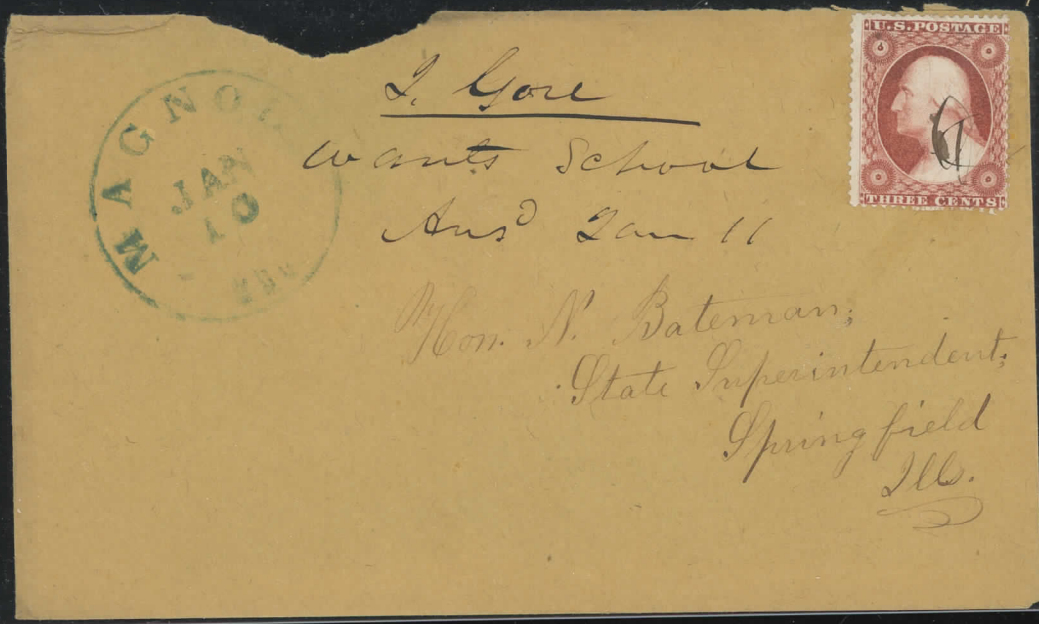 U.S. POSTAGE
THREE CENTS
MAGNO
JAN
10
J. Gore
wants School
Ans^d Jan 11
Hon. N. Bateman,
State Superintendent,
Springfield
Ills.